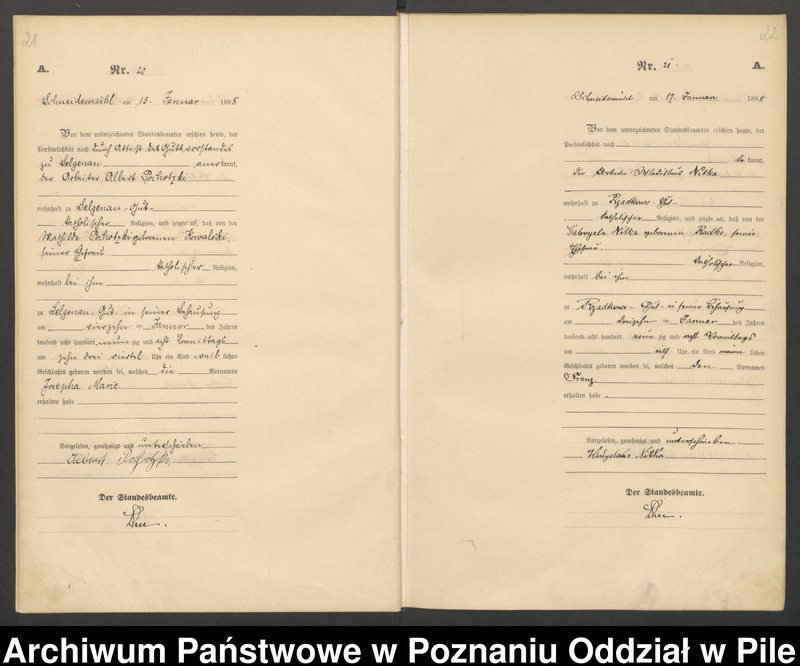 21
A.
Nr. 20
Schneidemühl am 15. Januar 1898
Vor dem unterzeichneten Standesbeamten erschien heute, der
Persönlichkeit nach durch Attest des Gutsvorstandes
zu Selgenau anerkannt,
der Arbeiter Albert Pochotzki
wohnhaft zu Selgenau-Gut-
katholischer Religion, und zeigte an, daß von der
Mathilde Pochotzki geborenen Kowalski,
seiner Ehefrau
katholischer Religion,
wohnhaft bei ihm
zu Selgenau-Gut in seiner Behausung
am vierzehn ten Januar des Jahres
tausend acht hundert neun zig und acht Vormittags
um zehn drei viertel Uhr ein Kind weib lichen
Geschlechts geboren worden sei, welches die Vornamen
Josepha Marie
erhalten habe
Vorgelesen, genehmigt und unterschrieben
Albert Pochotzki
Der Standesbeamte.
22
Nr. 21
A.
Schneidemühl am 17. Januar 1898
Vor dem unterzeichneten Standesbeamten erschien heute, der
Persönlichkeit nach
be kannt,
der Arbeiter Wladislaus Nitka
wohnhaft zu Rzadkowo-Gut-
katholischer Religion, und zeigte an, daß von der
Gabryela Nitka geborenen Radke seiner
Ehefrau.
katholischer Religion,
wohnhaft bei ihm
zu Rzadkowo-Gut-in seiner Behausung
am dreizehn ten Januar des Jahres
tausend acht hundert neun zig und acht Vormittags
um elf Uhr ein Kind männ lichen
Geschlechts geboren worden sei, welches den Vornamen
Franz
erhalten habe.
Vorgelesen, genehmigt und unterschrieben.
Wladyslaus Nitka
Der Standesbeamte.
Archiwum Państwowe w Poznaniu Oddział w Pile